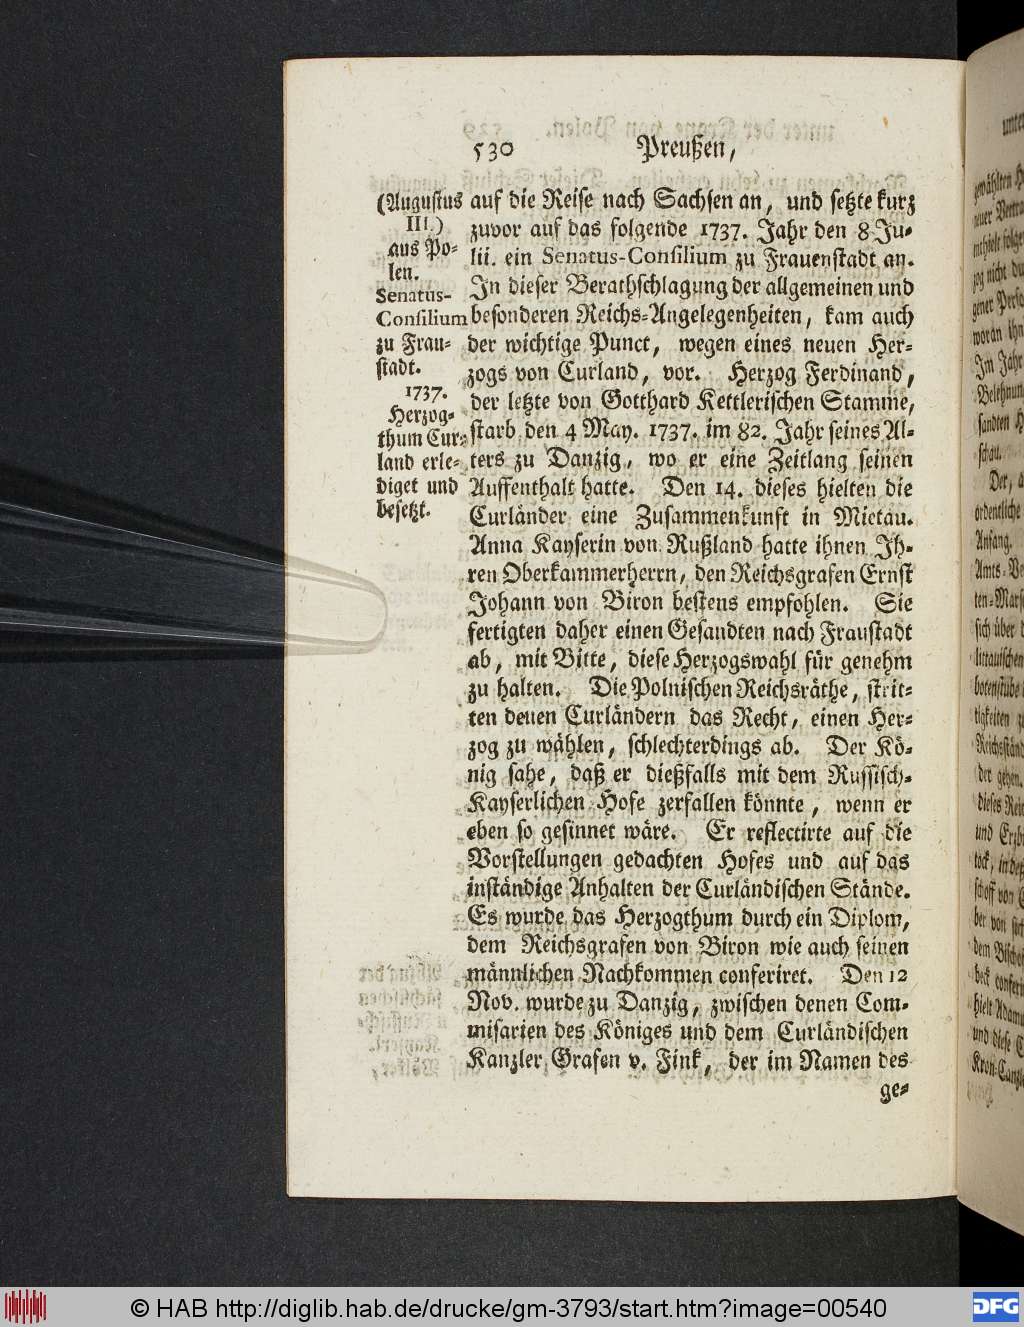 530 Preußen,
(Augustus
III.)
aus Po-
len.
Senatus-
Consilium
zu Frau-
stadt.
1737.
Herzog-
thum Cur-
land erle-
diget und
besetzt.
auf die Reise nach Sachsen an, und setzte kurz
zuvor auf das folgende 1737. Jahr den 8 Ju-
lii. ein Senatus-Consilium zu Frauenstadt an.
In dieser Berathschlagung der allgemeinen und
besonderen Reichs-Angelegenheiten, kam auch
der wichtige Punct, wegen eines neuen Her-
zogs von Curland, vor. Herzog Ferdinand,
der letzte von Gotthard Kettlerischen Stamme,
starb den 4 May. 1737. im 82. Jahr seines Al-
ters zu Danzig, wo er eine Zeitlang seinen
Auffenthalt hatte. Den 14. dieses hielten die
Curländer eine Zusammenkunft in Mietau.
Anna Kayserin von Rußland hatte ihnen Ih-
ren Oberkammerherrn, den Reichsgrafen Ernst
Johann von Biron bestens empfohlen. Sie
fertigten daher einen Gesandten nach Fraustadt
ab, mit Bitte, diese Herzogswahl für genehm
zu halten. Die Polnischen Reichsräthe, strit-
ten denen Curländern das Recht, einen Her-
zog zu wählen, schlechterdings ab. Der Kö-
nig sahe, daß er dießfalls mit dem Russisch-
Kayserlichen Hofe zerfallen könnte, wenn er
eben so gesinnet wäre. Er reflectirte auf die
Vorstellungen gedachten Hofes und auf das
inständige Anhalten der Curländischen Stände.
Es wurde das Herzogthum durch ein Diplom,
dem Reichsgrafen von Biron wie auch seinen
männlichen Nachkommen conferiret. Den 12
Nov. wurde zu Danzig, zwischen denen Com-
misarien des Königes und dem Curländischen
Kanzler Grafen v. Fink, der im Namen des
ge-
© HAB http://diglib.hab.de/drucke/gm-3793/start.htm?image=00540
DFG